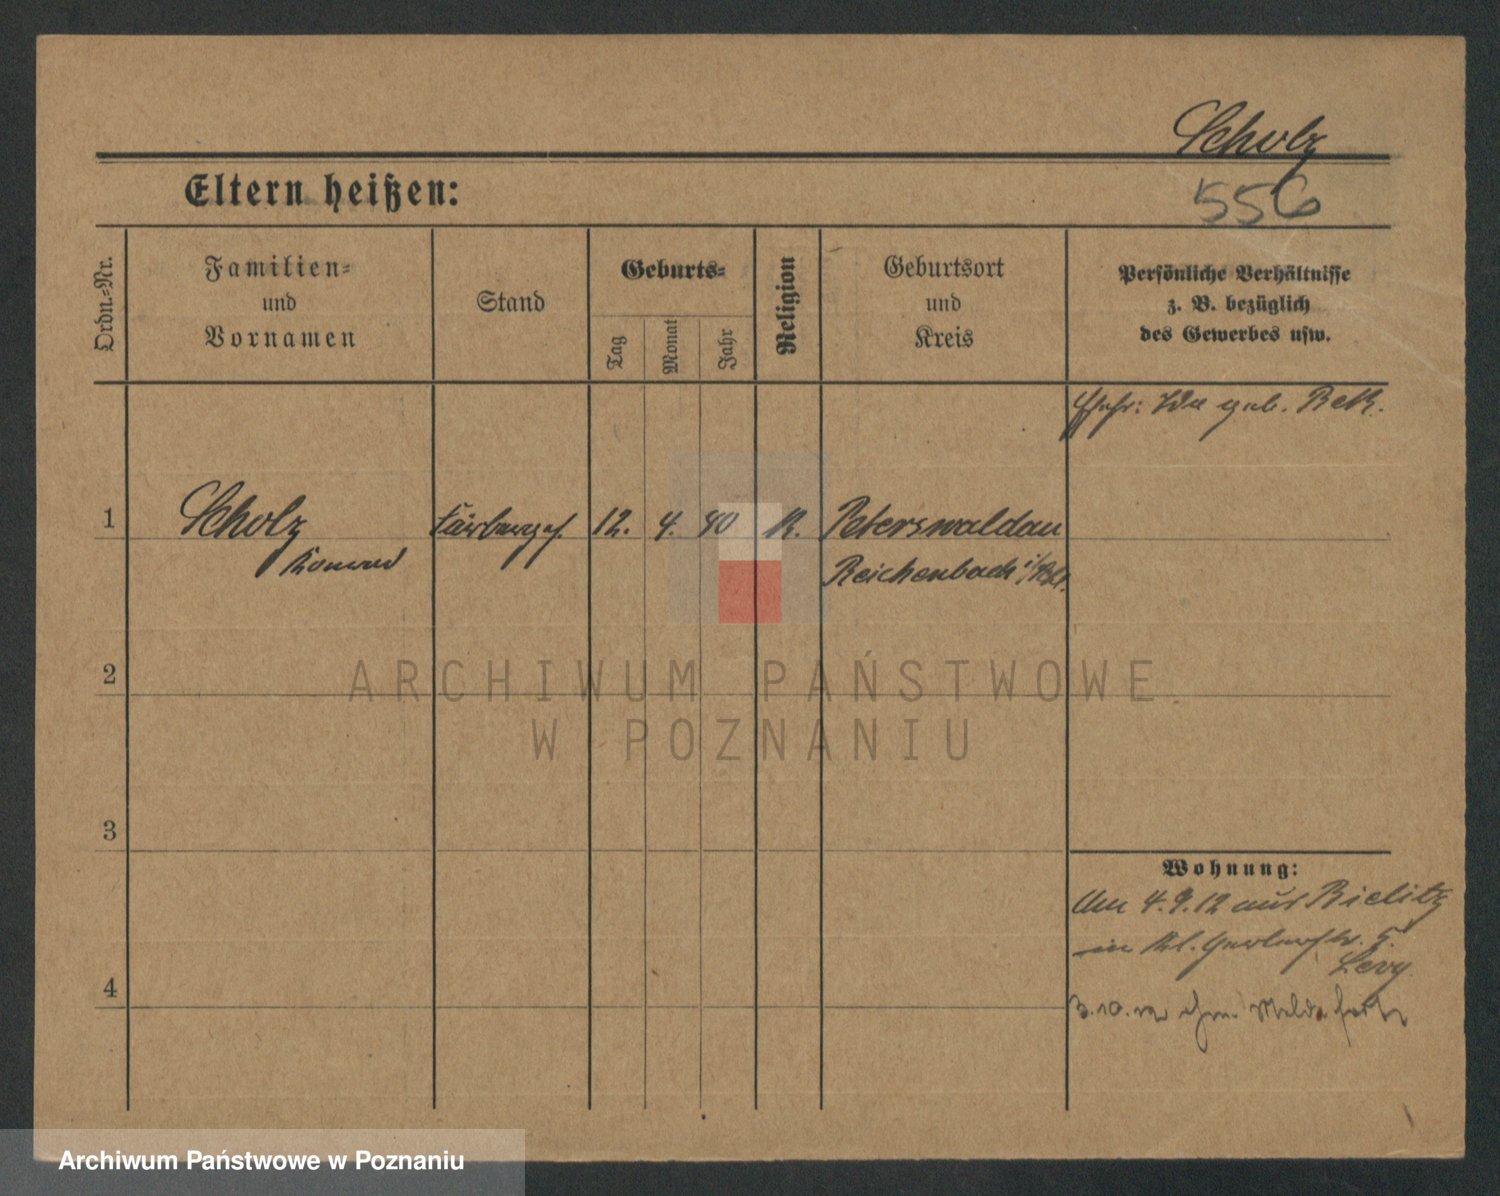 Scholz
Eltern heißen:
556
Ordn.-Nr.
Familien-
und
Vornamen
Stand
Geburts-
Tag
Monat
Jahr
Religion
Geburtsort
und
Kreis
Persönliche Verhältnisse
z. B. bezüglich
des Gewerbes usw.
Ida geb.
1
Scholz
Konrad
Färberges.
12. 4. 90
K.
Peterswaldau
Reichenbach i/Schl.
2
ARCHIWUM PAŃSTWOWE
W POZNANIU
3
Wohnung:
Am 4.9.12 aus Bielitz
in Kl. Gerberstr. 5.
Levy
4
3.10. ohne Meldg fort
Archiwum Państwowe w Poznaniu